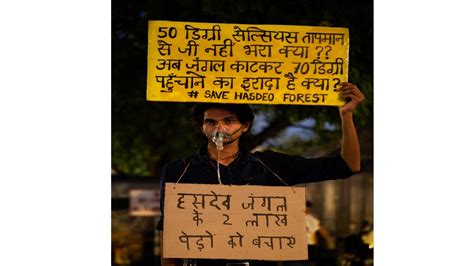 50 डिग्री सेल्सियस तापमान
से जी नहीं भरा क्या ??
अब जंगल काटकर 70 डिग्री
पहुँचाने का इरादा है क्या?
# SAVE HASDEO FOREST
हसदेव जंगल
के 2 लाख
पेड़ों को बचाएं